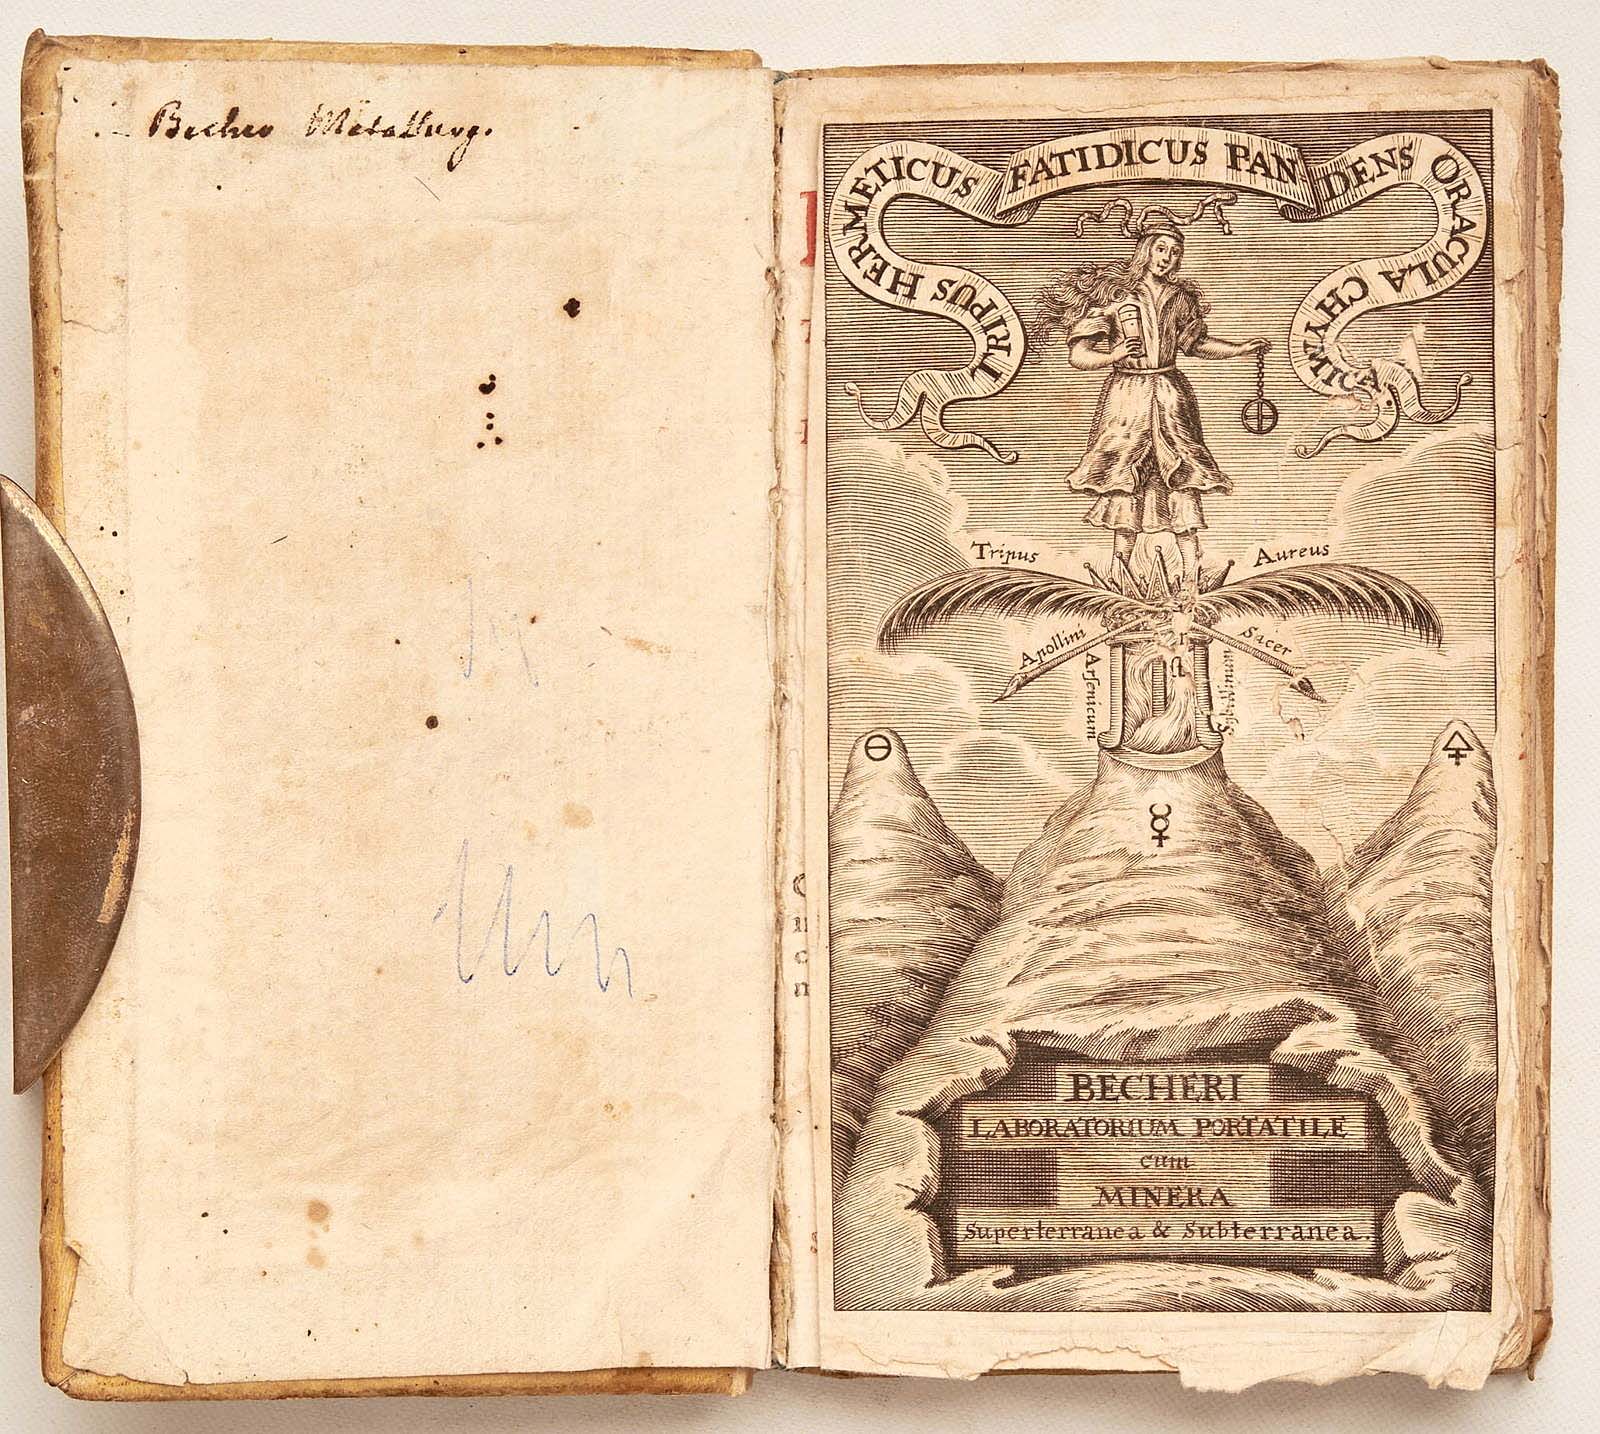 Becher Metallurg.
TRIPUS HERMETICUS FATIDICUS PANDENS ORACULA CHYMICA.
Tripus Aureus
Apollini Sacer
Arsenicum
BECHERI
LABORATORIUM PORTATILE
cum
MINERA
Superterranea & Subterranea.